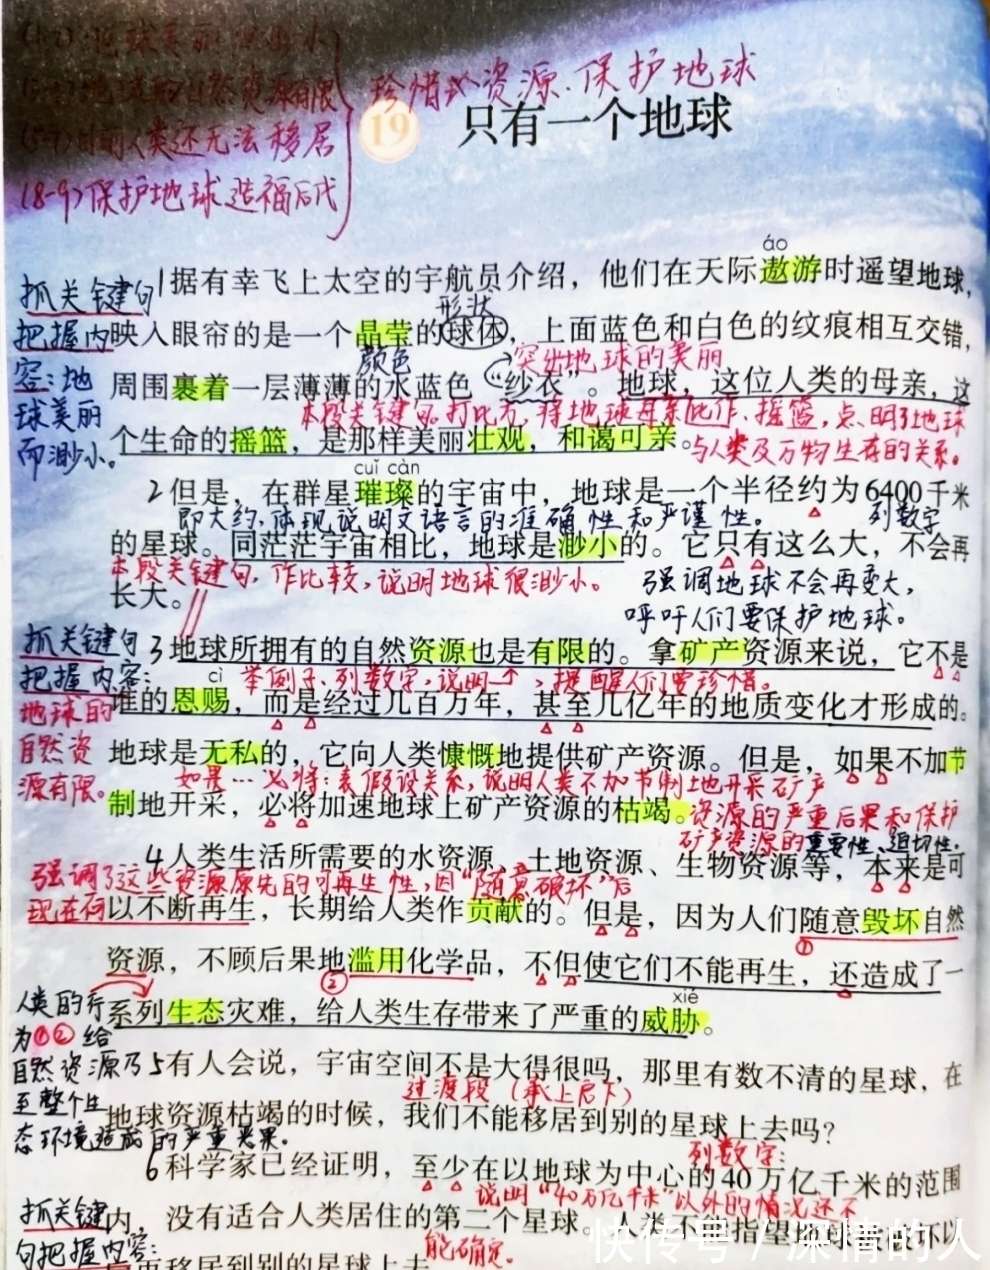 (1-2)地球美丽 渺小
自然资源有限
人类还无法移居
(8-9)保护地球造福后代
珍惜 资源、保护地球
19 只有一个地球
áo
1据有幸飞上太空的宇航员介绍，他们在天际遨游时遥望地球，
形状
映入眼帘的是一个晶莹的球体，上面蓝色和白色的纹痕相互交错，
颜色
突出地球的美丽
周围裹着一层薄薄的水蓝色“纱衣”。地球，这位人类的母亲，这
本段关键句。打比方，将地球比作母亲、摇篮，点明了地球
个生命的摇篮，是那样美丽壮观，和蔼可亲。
与人类及万物生存的关系。
抓关键句
把握内
容：地
球美丽
而渺小。
cuǐ càn
2但是，在群星璀璨的宇宙中，地球是一个半径约为6400千米
即大约，体现说明文语言的准确性和严谨性。
列数字
的星球。同茫茫宇宙相比，地球是渺小的。它只有这么大，不会再
本段关键句，作比较，说明地球很渺小。
强调地球不会再变大，
长大。
呼吁人们要保护地球。
抓关键句
把握内容：
地球的
自然资
源有限。
3地球所拥有的自然资源也是有限的。拿矿产资源来说，它不是
cì
举例子、列数字，说明 ，提醒人们要珍惜。
谁的恩赐，而是经过几百万年，甚至几亿年的地质变化才形成的。
地球是无私的，它向人类慷慨地提供矿产资源。但是，如果不加节
如果…必将：表假设关系，说明人类不加节制地开采矿产
制地开采，必将加速地球上矿产资源的枯竭。
资源的严重后果和保护
矿产资源的重要性、迫切性。
4人类生活所需要的水资源、土地资源、生物资源等，本来是可
强调了这些资源原先的可再生性，因“随意破坏”后
现在何
以不断再生，长期给人类作贡献的。但是，因为人们随意毁坏自然
①
资源，不顾后果地滥用化学品，不但使它们不能再生，还造成了一
②
xié
系列生态灾难，给人类生存带来了严重的威胁。
人类的行
为①②给
自然资源乃
至整个生
态环境造成的严重恶果。
5有人会说，宇宙空间不是大得很吗，那里有数不清的星球，在
过渡段（承上启下）
地球资源枯竭的时候，我们不能移居到别的星球上去吗？
列数字：
6科学家已经证明，至少在以地球为中心的40万亿千米的范围
说明“40万亿千米”以外的情况还不
内，没有适合人类居住的第二个星球。人类不能指望地球被破坏以
能确定。
后再移居到别的星球上去
抓关键
句把握内容：
快传号 / 深情的人